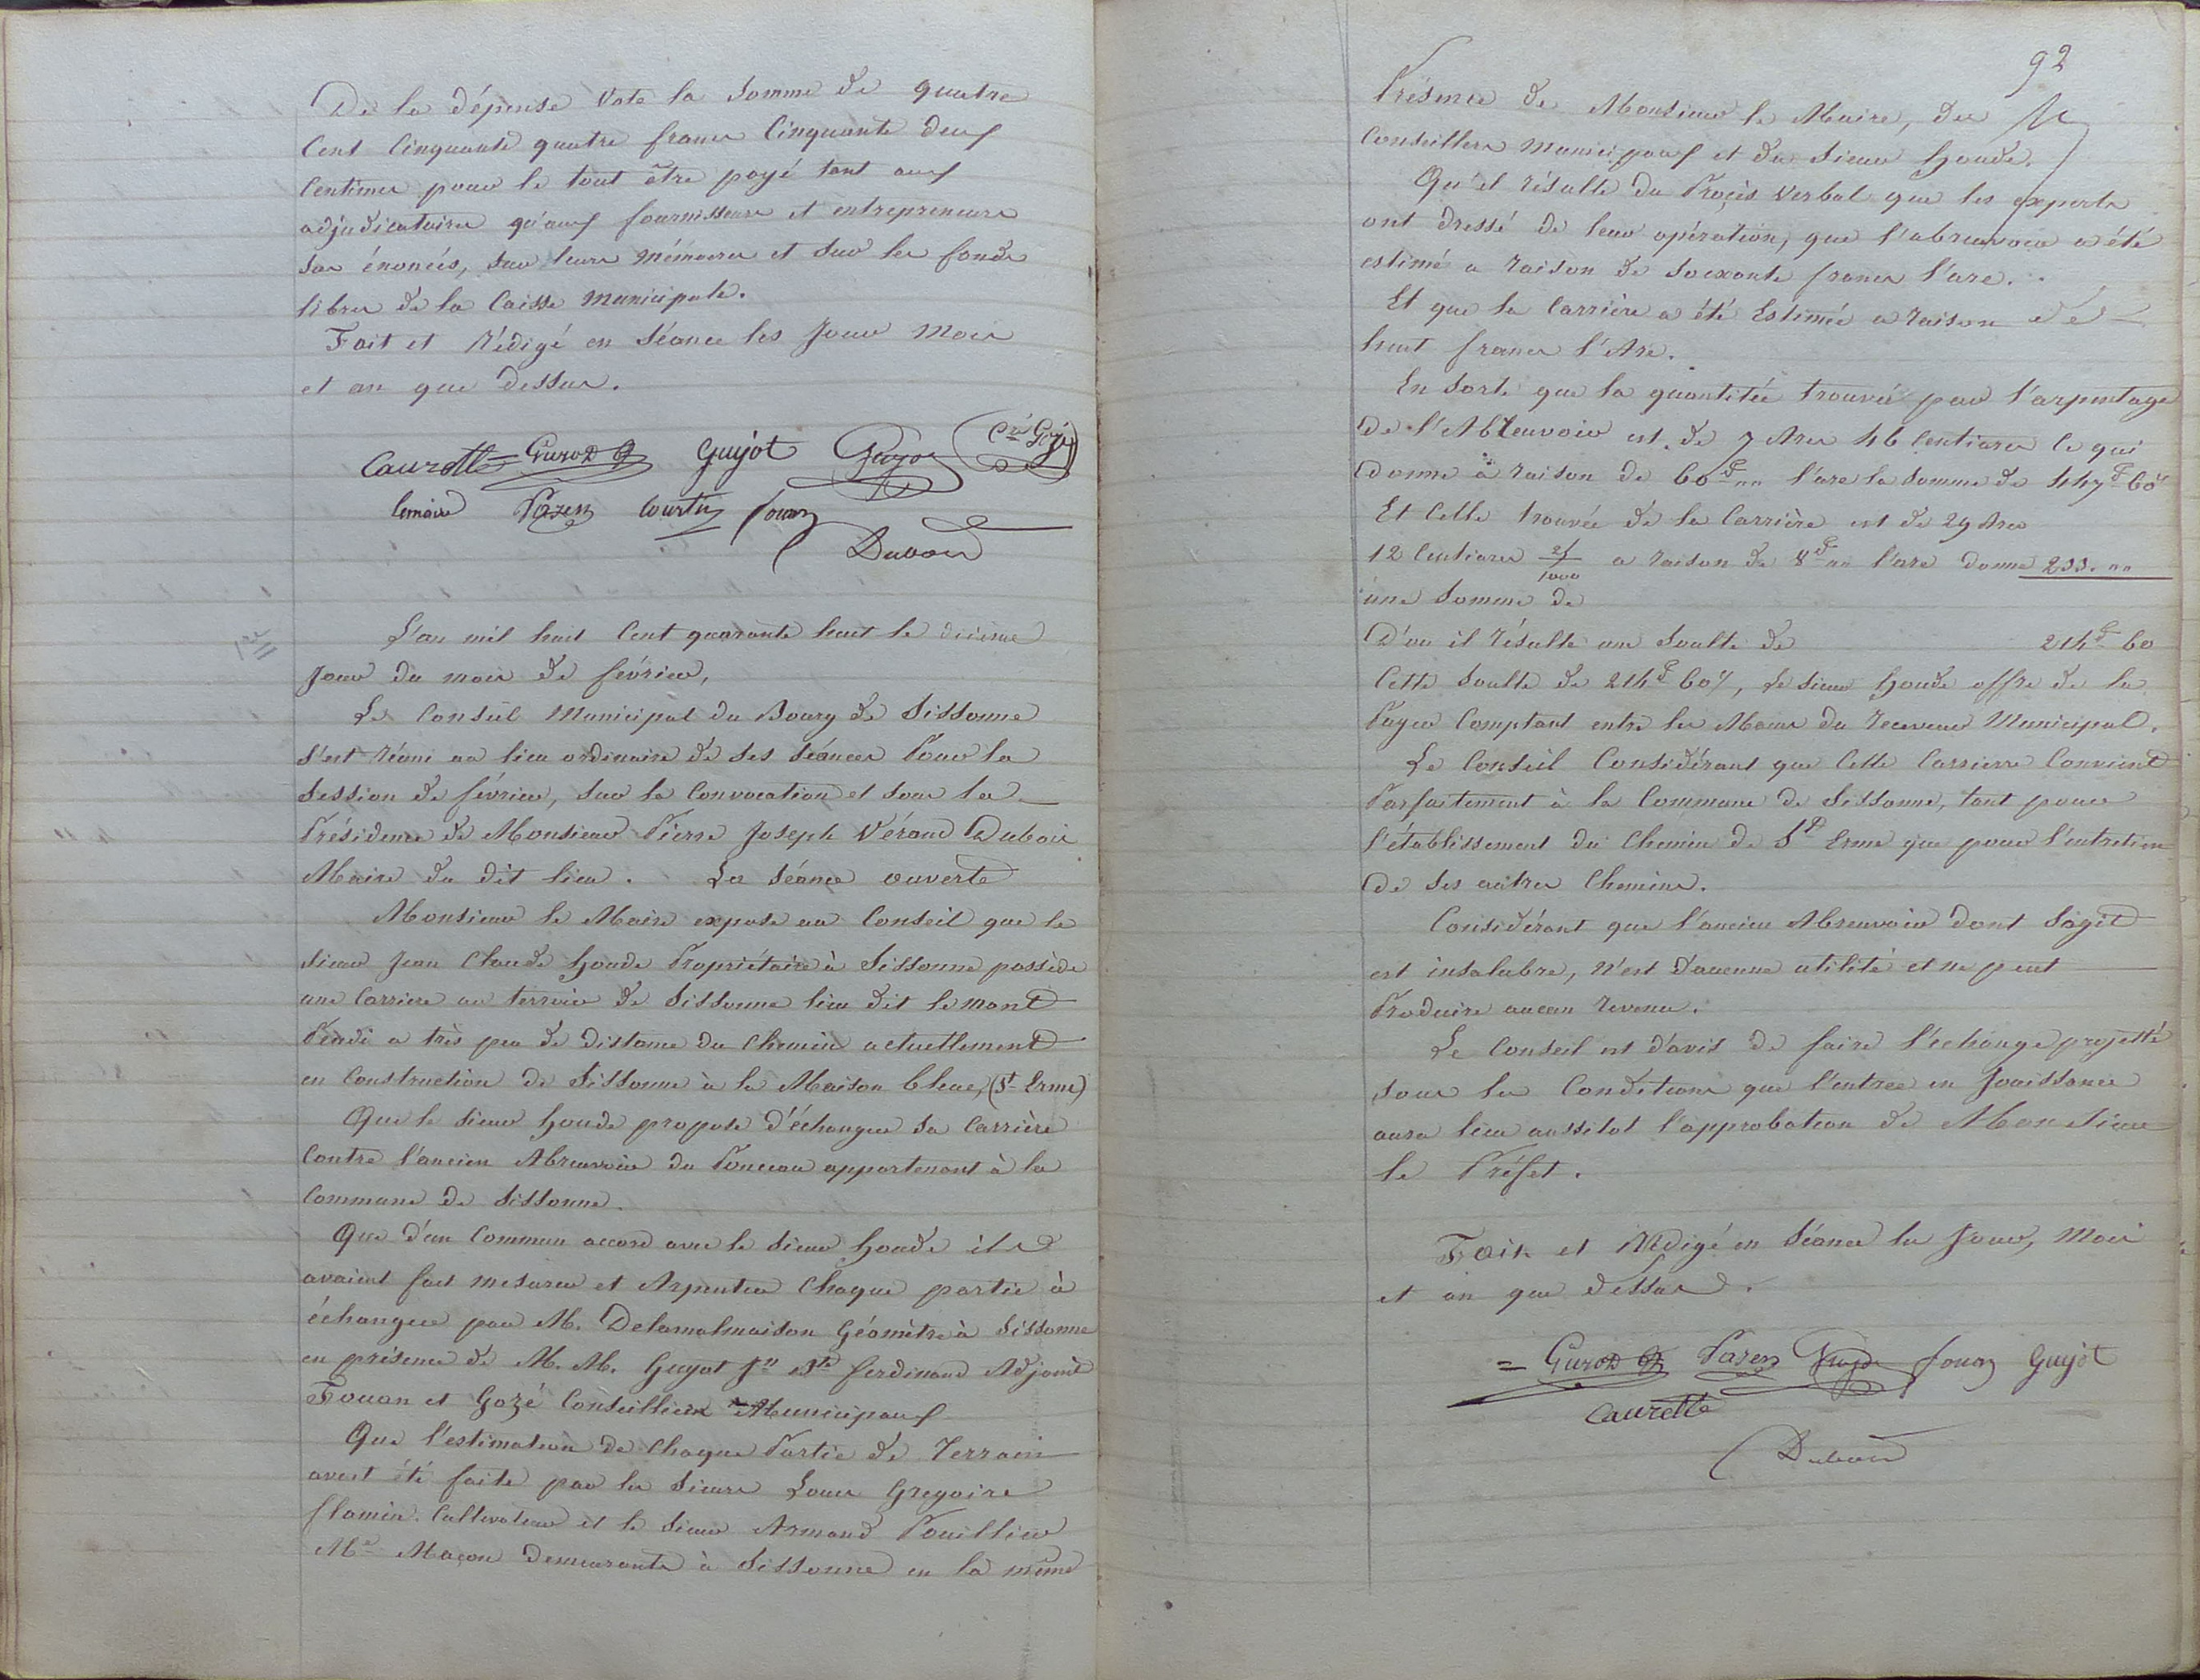 De la dépense Vote la Somme de quatre
Cent Cinquante quatre francs Cinquante deux
Centimes pour le tout être payé tant aux
adjudicataires qu'aux fournisseurs et entrepreneurs
Sus énoncés, Sur leurs Mémoires et Sur les fonds
libres de la Caisse Municipale.
Fait et Rédigé en Séance les Jour Mois
et an que dessus.
Caurette Gurod Guyot Guyot Gozé
Lemaire Pazen Courtin fouan
Dubois
1re
L'an mil huit Cent quarante huit le dixième
Jour du mois de février,
Le Conseil Municipal du Bourg de Sissonne
S'est réuni au lieu ordinaire de ses séances Pour la
Session de février, Sur la Convocation et sous la
Présidence de Monsieur Pierre Joseph Vérond Dubois
Maire du dit lieu. La Séance ouverte
Monsieur le Maire expose au Conseil que le
Sieur Jean Claude houde Propriétaire à Sissonne possède
une Carriere au terroir de Sissonne lieu dit le mont
a très peu de distance du Chemin actuellement
en Construction de Sissonne à la Maison bleue, (St Erme)
Que le Sieur houde propose d'échanger sa Carrière
Contre l'ancien Abreuvoir du Ponceau appartenant à la
Commune de Sissonne.
Que d'un Commun accord avec le Sieur houde ils
avaient fait mesurer et Arpenter Chaque partie à
échanger par M. Delamalmaison Géomètre à Sissonne
en présence de M. M. Guyot Jn Bte ferdinand Adjoint
Fouan et Gozé Conseillers Municipaux
Que l'estimation de Chaque Partie de Terrain
avait été faite par les Sieurs Louis Gregoire
flamin Cultivateur et le Sieur Armand Pouillier
Me Maçon demeurants à Sissonne en la même
92
Présence de Monsieur le Maire, des
Conseillers Municipaux et du Sieur houde.
Qu'il résulte du Procès Verbal que les experts
ont dressé de leur opération, que l'abreuvoir a été
estimé a raison de Soixante francs l'are.
Et que la Carrière a été Estimée a raison de
huit francs l'Are.
En Sorte que la quantitée trouvée par l'arpentage
De l'Abreuvoir est de 7 Ares 46 Centiares Ce qui
Donne à raison de 60f "" l'are la Somme de 447f 60c
Et Celle trouvée de la Carrière est de 29 Ares
12 Centiares 25/1000 a raison de 8f "" l'are donne 233. ""
une Somme de
D'ou il résulte une Soulte de 214f 60
Cette Soulte de 214f 60c, Le Sieur houde offre de la
Payer Comptant entre les Mains du receveur Municipal.
Le Conseil Considérant que Cette Carrierre Convient
Parfaitement à la Commune de Sissonne, tant pour
l'établissement du Chemin de St Erme que pour l'entretien
de ses autres Chemins.
Considérant que l'ancien Abreuvoir dont Sagit
est insalubre, n'est d'aucune utilité et ne peut
Produire aucun revenu.
Le Conseil est d'avis de faire l'échange projetté
Sous les Conditions que l'entrée en Jouissance
aura lieu aussitot l'approbation de Monsieur
le Préfet.
Fait et Rédigé en Séance les Jour, Mois
et an que dessus.
Gurod Pazen Guyot fouan Guyot
Caurette
Dubois